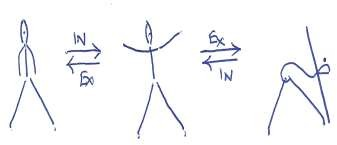 IN
Ex
Ex
IN